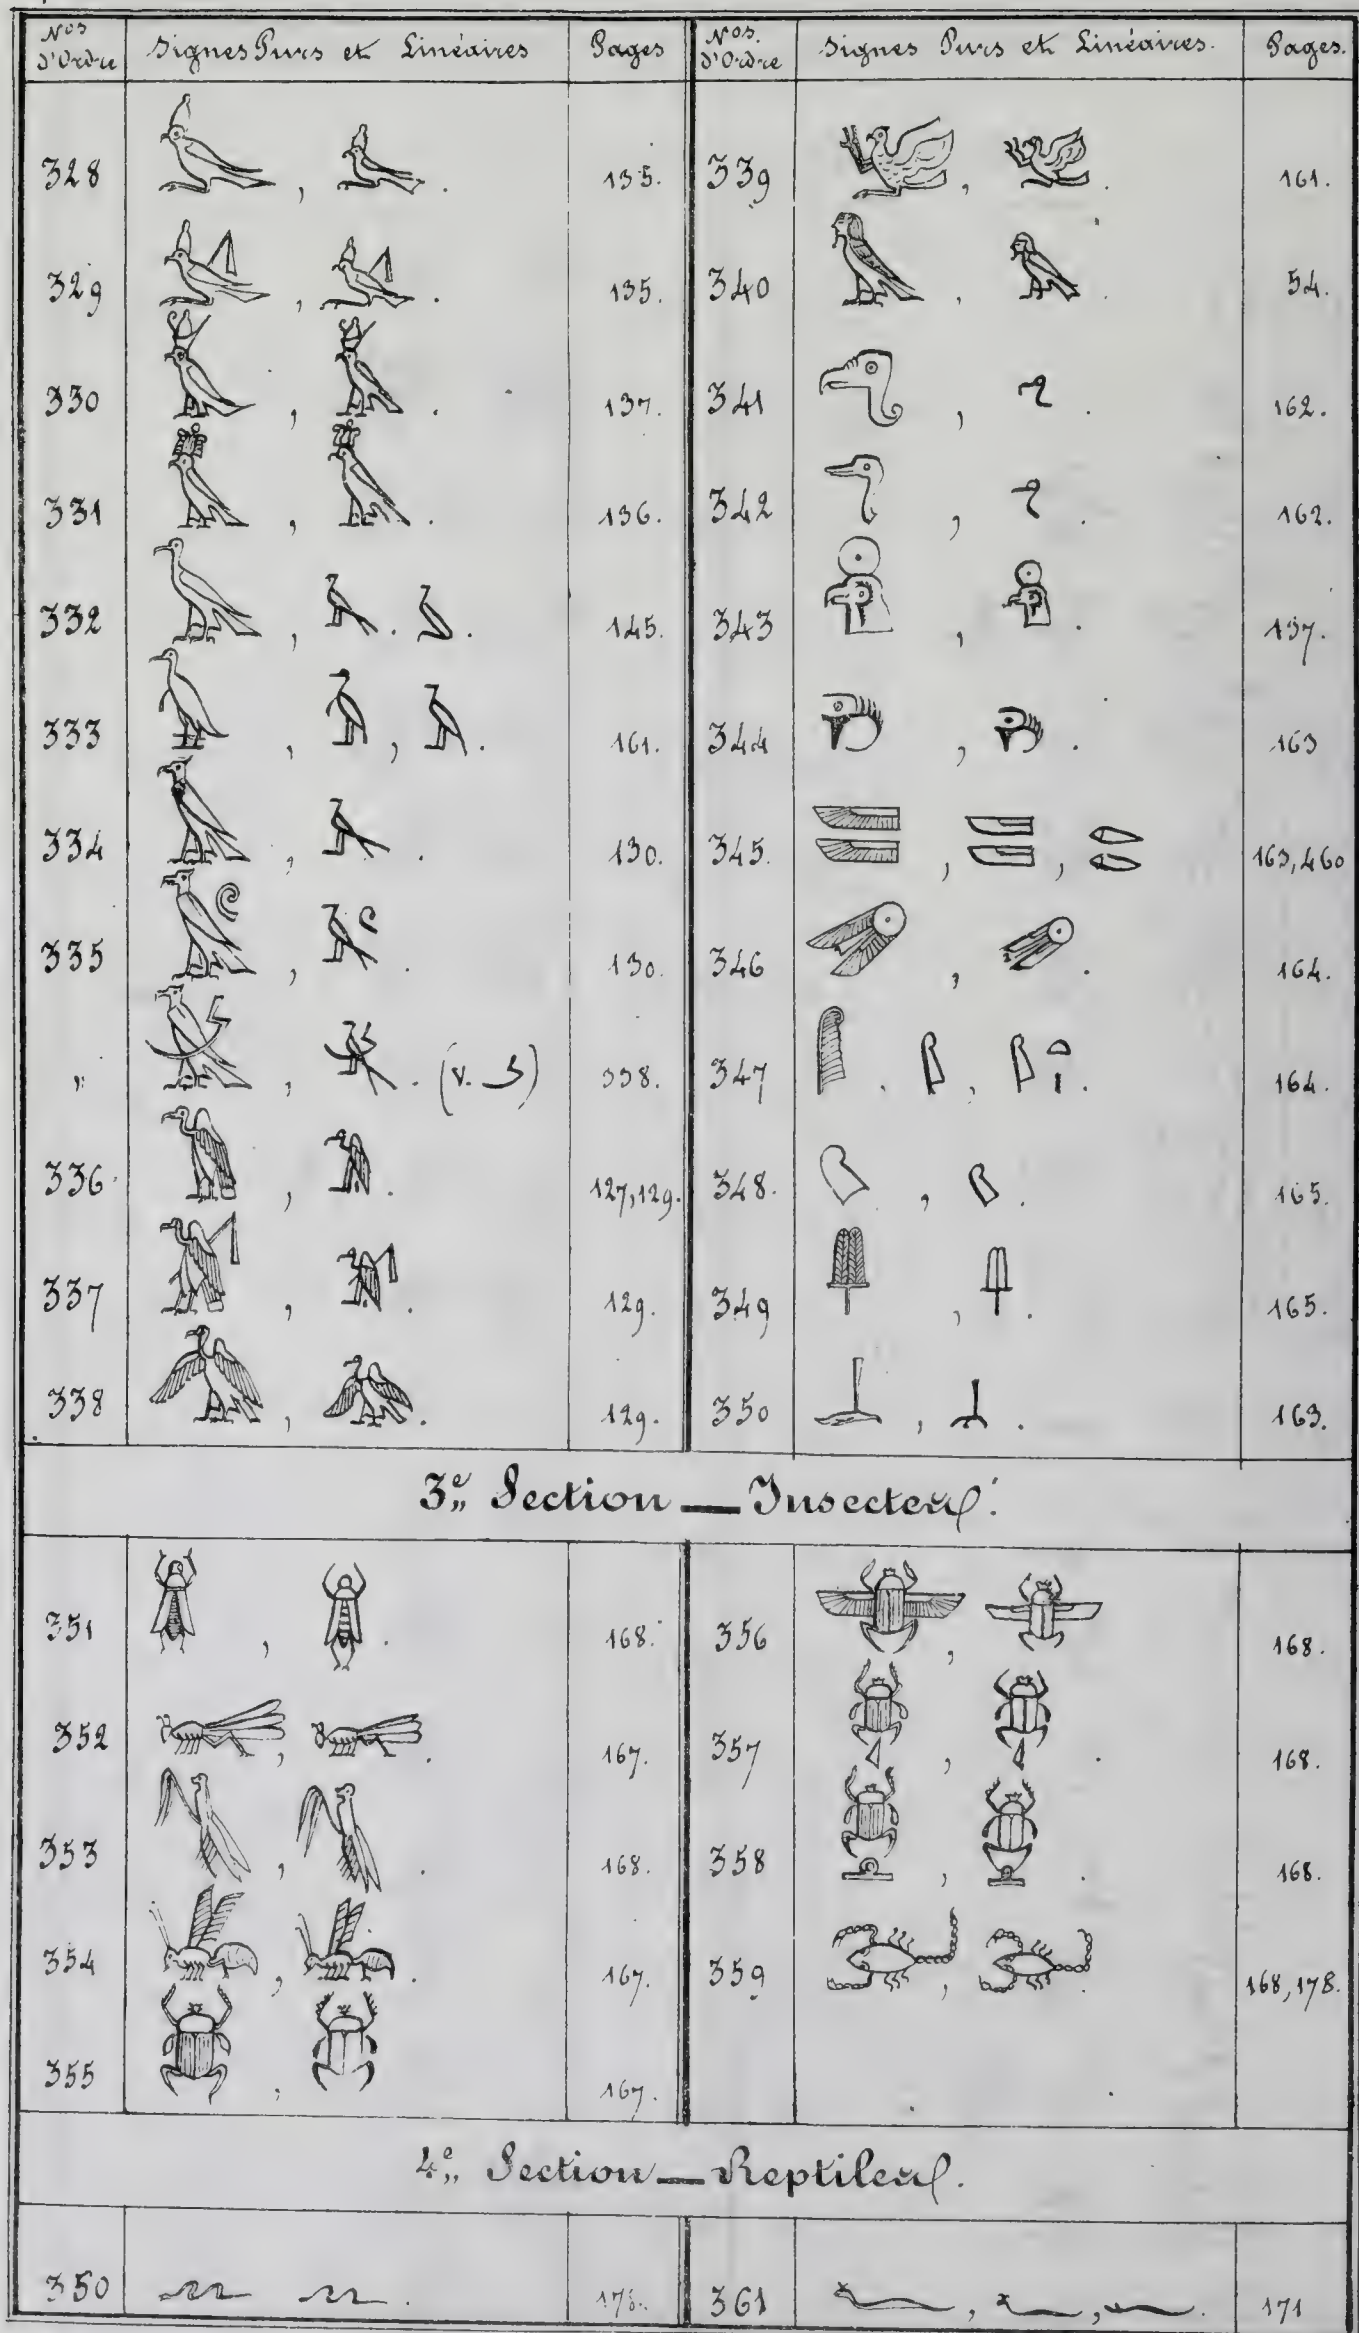 Nos D'Ordre Signes Purs et Linéaires Pages Nos. D'Ordre Signes Purs et Linéaires. Pages.
328 , . 135. 339 , . 161.
329 , . 135. 340 , . 54.
330 , . 137. 341 , . 162.
331 , . 136. 342 , . 162.
332 , . . 145. 343 , . 137.
333 , , . 161. 344 , . 163
334 , . 130. 345. , , 163, 460
335 , . 130. 346 , . 164.
" , . (v. ) 338. 347 . , . 164.
336. , . 127, 129. 348. , . 165.
337 , . 129. 349 , . 165.
338 , . 129. 350 , . 163.
3e,, Section — Insectes.
351 , . 168. 356 , 168.
352 , . 167. 357 , . 168.
353 , . 168. 358 , . 168.
354 , . 167. 359 , . 168, 178.
355 , 167.
4e,, Section — Reptiles.
350 . 361 , , . 171